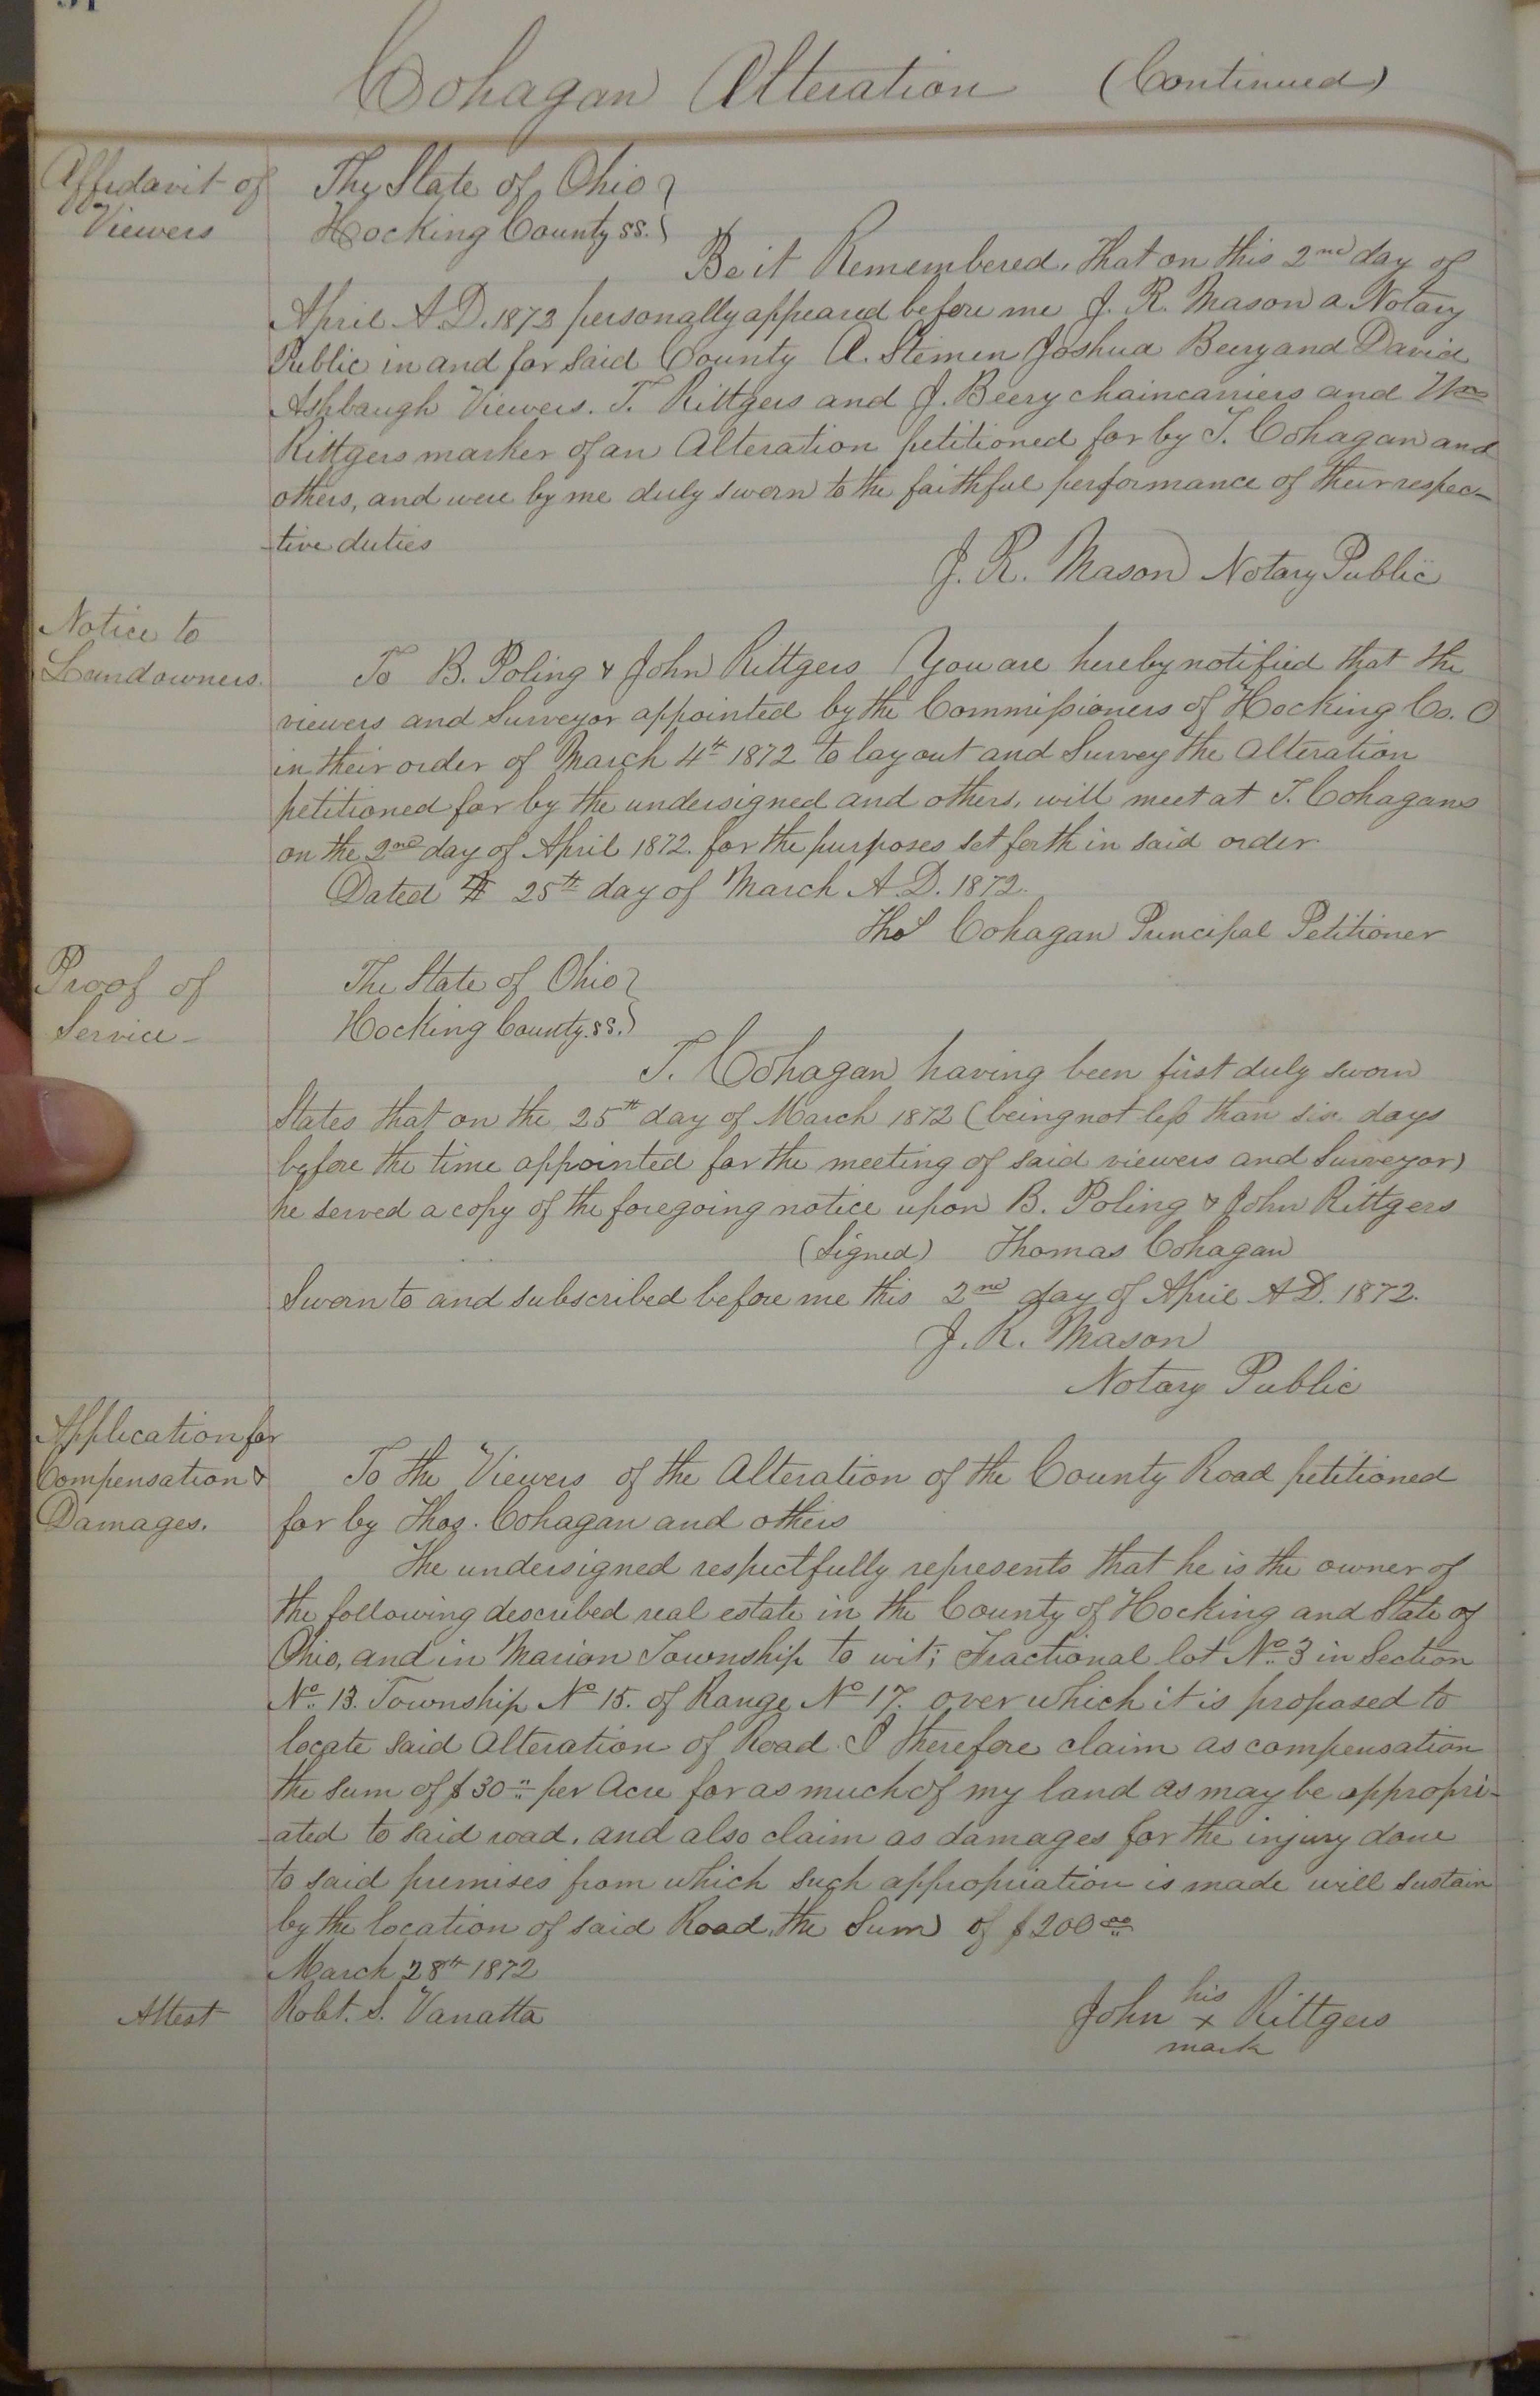 Cohagan Alteration (Continued)
Affidavit of
Viewers
The State of Ohio }
Hocking County ss. }
Be it Remembered, that on this 2nd day of
April A.D. 1872 personally appeared before me J. R. Mason a Notary
Public in and for said County A. Stemen Joshua Beery and David
Ashbaugh Viewers. T. Rittgers and J. Beery chaincarriers and Wm
Rittgers marker of an Alteration petitioned for by T. Cohagan and
others, and were by me duly sworn to the faithful performance of their respec-
-tive duties
J. R. Mason Notary Public
Notice to
Landowners.
To B. Poling & John Rittgers You are hereby notified that the
viewers and Surveyor appointed by the Commissioners of Hocking Co. O
in their order of March 4th 1872 to lay out and Survey the Alteration
petitioned for by the undersigned and others, will meet at T. Cohagans
on the 2nd day of April 1872. for the purposes set forth in said order
Dated 25th day of March A.D. 1872.
Thos Cohagan Principal Petitioner
Proof of
Service-
The State of Ohio }
Hocking County. ss. }
T. Cohagan having been first duly sworn
States that on the 25th day of March 1872 (being not less than six days
before the time appointed for the meeting of said viewers and Surveyor)
he served a copy of the foregoing notice upon B. Poling & John Rittgers
(Signed) Thomas Cohagan
Sworn to and subscribed before me this 2nd day of April A.D. 1872.
J. R. Mason
Notary Public
Application for
Compensation &
Damages.
To the Viewers of the Alteration of the County Road petitioned
for by Thos. Cohagan and others
The undersigned respectfully represents that he is the owner of
the following described real estate in the County of Hocking and State of
Ohio, and in Marion Township to wit; Fractional lot No. 3 in Section
No. 13. Township No 15. of Range No 17. over which it is proposed to
locate said Alteration of Road. I therefore claim as compensation
the sum of $30.. per Acre for as much of my land as may be appropri-
-ated to said road, and also claim as damages for the injury done
to said premises from which such appropriation is made will sustain
by the location of said Road, the Sum of $200.00
March 28th 1872
Attest Robt. S. Vanatta
his
John x Rittgers
mark